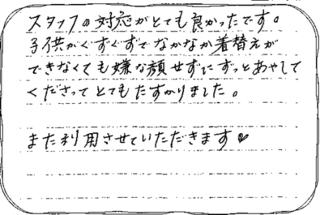 スタッフの対応がとても良かったです。
子供がぐずぐずでなかなか着替えが
できなくても嫌な顔せずにずっとあやして
くださってとてもたすかりました。
また利用させていただきます♥